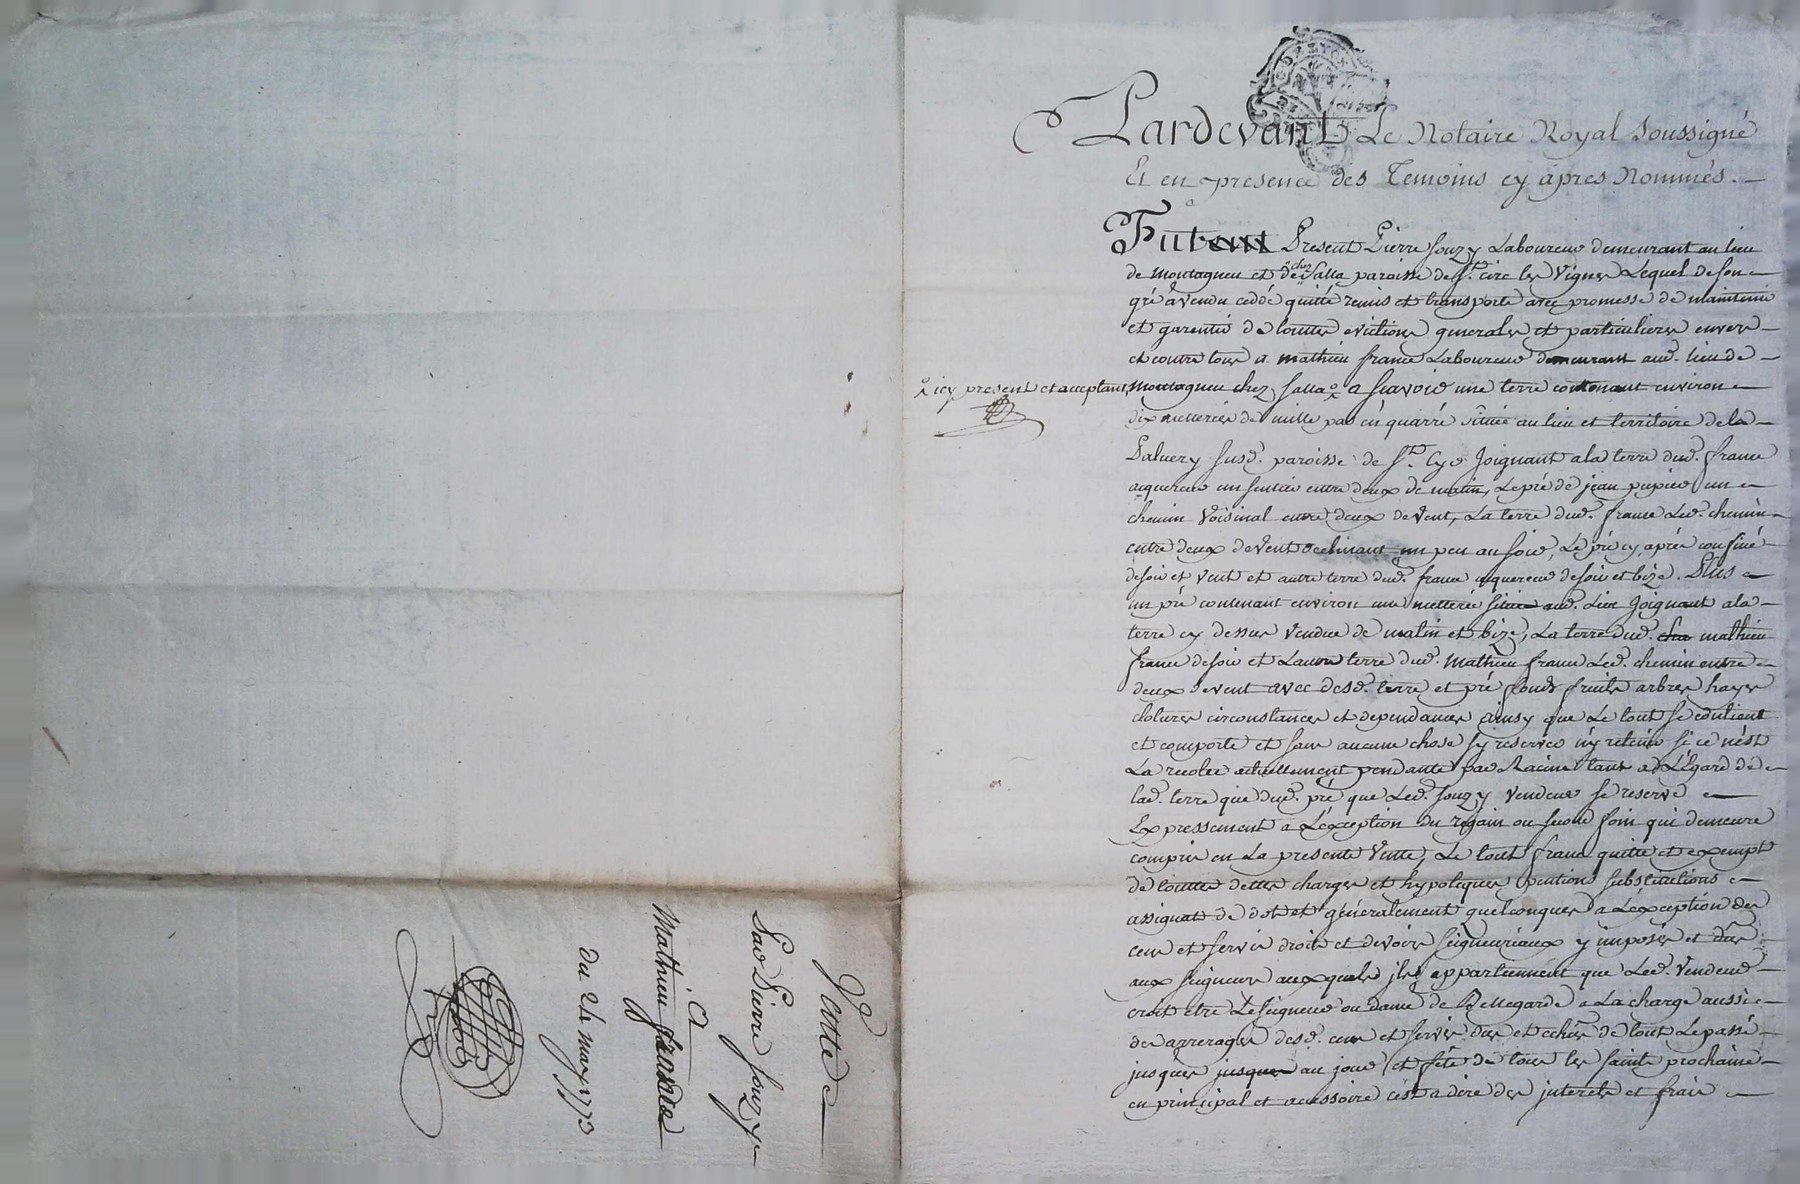 Pardevant Le Notaire Royal Soussigné
Et en presence des Temoins cy apres Nommés.
Fut Present Pierre Souzy Laboureur demeurant au lieu
de Montagneu et de chez Salla paroisse de St. circ les Vignes Lequel de son
gré a vendu ceddé quitté remis et transporté avec promesse de maintenir
et garentir de touttes evictions generales et particulieres envers
et contre tous a mathieu france Laboureur demeurant aud. lieu de
Montagneu chez Salla a scavoir une terre contenant environ
icy present et acceptant
dix metterées de mille pas en quarré située au lieu et territoire de la
Paluery susd. paroisse de St. Cyr Joignant a la terre dud. france
acquereur un sentier entre deux de matin, Le pré de jean pupier un
chemin voisinal entre deux de vent, La terre dud. france Led. chemin
entre deux de vent declinant un peu au soir, Le pré cy après confiné
de soir et vent et autre terre dud. france acquereur de soir et bize. Plus
un pré contenant environ une metterée située aud. Lieu Joignant a la
terre cy dessus vendue de matin et bize, La terre dud. mathieu
france de soir et terre dud. Mathieu france Led. chemin entre
deux de vent avec desd. terre et pré fonds fruits arbres hayes
clotures circonstances et dependances ainsy que Le tout se contient
et comporte et sans aucune chose sy reserver ny retenir si ce n'est
La recolte actuellement pendante par Racine tant a L'Egard de
lad. terre que dud. pré que Led. Souzy vendeur se reserve
Expressement a L'exception du regain ou second foin qui demeure
compris en La presente Vente, Le tout franc quitte et exempt
de touttes dettes charges et hypoteques pentions substitutions
assignat de dot et généralement quelconques a L'exception des
cens et servis droits et devoirs seigneuriaux y imposés et dûs
aux seigneurs auxquels jls appartiennent que Led. Vendeur
croit etre Le seigneur ou dame de Bellegarde a La charge aussi
des arrerages desd. cens et servis dus et echus de tout Le passé
jusques jusques au jour et fete de tous les saints prochaine
en principal et accessoire c'est a dire des jnterets et frais
Vente
Par Pierre Souzy
A
Mathieu france
du 24 may 1773